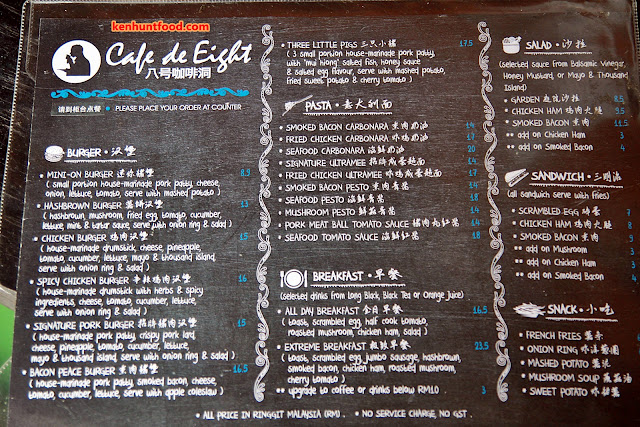 kenhuntfood.com
Cafe de Eight
八号咖啡洞
请到柜台点餐 • PLEASE PLACE YOUR ORDER AT COUNTER
BURGER • 汉堡
• MINI-ON BURGER 迷你猪堡 8.9
( small portion house-marinade pork patty, cheese,
onion, lettuce, tomato, serve with mashed potato )
• HASHBROWN BURGER 薯饼汉堡 13
( hashbrown, mushroom, fried egg, tomato, cucumber,
lettuce, mint & tartar sauce, serve with onion ring & salad )
• CHICKEN BURGER 鸡肉汉堡 15
( house-marinade drumstick, cheese, pineapple,
tomato, cucumber, lettuce, mayo & thousand island,
serve with onion ring & salad )
• SPICY CHICKEN BURGER 辛辣鸡肉汉堡 16
( house-marinade drumstick with herbs & spicy
ingredients, cheese, tomato, cucumber, lettuce,
serve with onion ring & salad )
• SIGNATURE PORK BURGER 招牌猪肉汉堡 15
( house-marinade pork patty, crispy pork lard,
cheese, pineapple, tomato, cucumber, lettuce,
mayo & thousand island, serve with onion ring & salad )
• BACON PEACE BURGER 熏肉猪堡 16.5
( house-marinade pork patty, smoked bacon, cheese,
tomato, cucumber, lettuce, serve with apple coleslaw )
• THREE LITTLE PIGS 三只小猪 17.5
( 3 small portion house-marinade pork patty,
with 'mui hiong' salted fish, honey sauce
& salted egg flavour, serve with mashed potato,
fried sweet potato & cherry tomato )
PASTA • 意大利面
• SMOKED BACON CARBONARA 熏肉奶油 14
• FRIED CHICKEN CARBONARA 炸鸡奶油 14
• SEAFOOD CARBONARA 海鲜奶油 20
• SIGNATURE ULTRAMEE 招牌咸蛋超面 14
• FRIED CHICKEN ULTRAMEE 炸鸡咸蛋超面 14
• SMOKED BACON PESTO 熏肉青酱 14
• SEAFOOD PESTO 海鲜青酱 18
• MUSHROOM PESTO 鲜菇青酱 14
• PORK MEAT BALL TOMATO SAUCE 猪肉丸红酱 14
• SEAFOOD TOMATO SAUCE 海鲜红酱 18
BREAKFAST • 早餐
(selected drinks from Long Black, Black Tea or Orange Juice)
• ALL DAY BREAKFAST 全日早餐 16.5
( toast, scrambled egg, half cook tomato,
roasted mushroom, chicken ham, salad )
• EXTREME BREAKFAST 极致早餐 23.5
( toast, scrambled egg, jumbo sausage, hashbrown,
smoked bacon, chicken ham, roasted mushroom,
cherry tomato )
•• upgrade to coffee or drinks below RM10 . 3
SALAD • 沙拉
(selected sauce from Balsamic Vinegar,
Honey Mustard, or Mayo & Thousand
Island)
• GARDEN 田园沙拉 8
• CHICKEN HAM 鸡肉火腿 9.5
• SMOKED BACON 熏肉 11.5
•• add on Chicken Ham 3
•• add on Smoked Bacon 4
SANDWICH • 三明治
(all sandwich serve with fries)
• SCRAMBLED EGG 炒蛋 7
• CHICKEN HAM 鸡肉火腿 8
• SMOKED BACON 熏肉 9
•• add on Mushroom 3
•• add on Chicken Ham 3
•• add on Smoked Bacon 4
SNACK • 小吃
• FRENCH FRIES 薯条
• ONION RING 炸洋葱圈
• MASHED POTATO 薯泥
• MUSHROOM SOUP 蘑菇汤
• SWEET POTATO 炸番薯
• ALL PRICE IN RINGGIT MALAYSIA (RM) . • NO SERVICE CHARGE, NO GST .